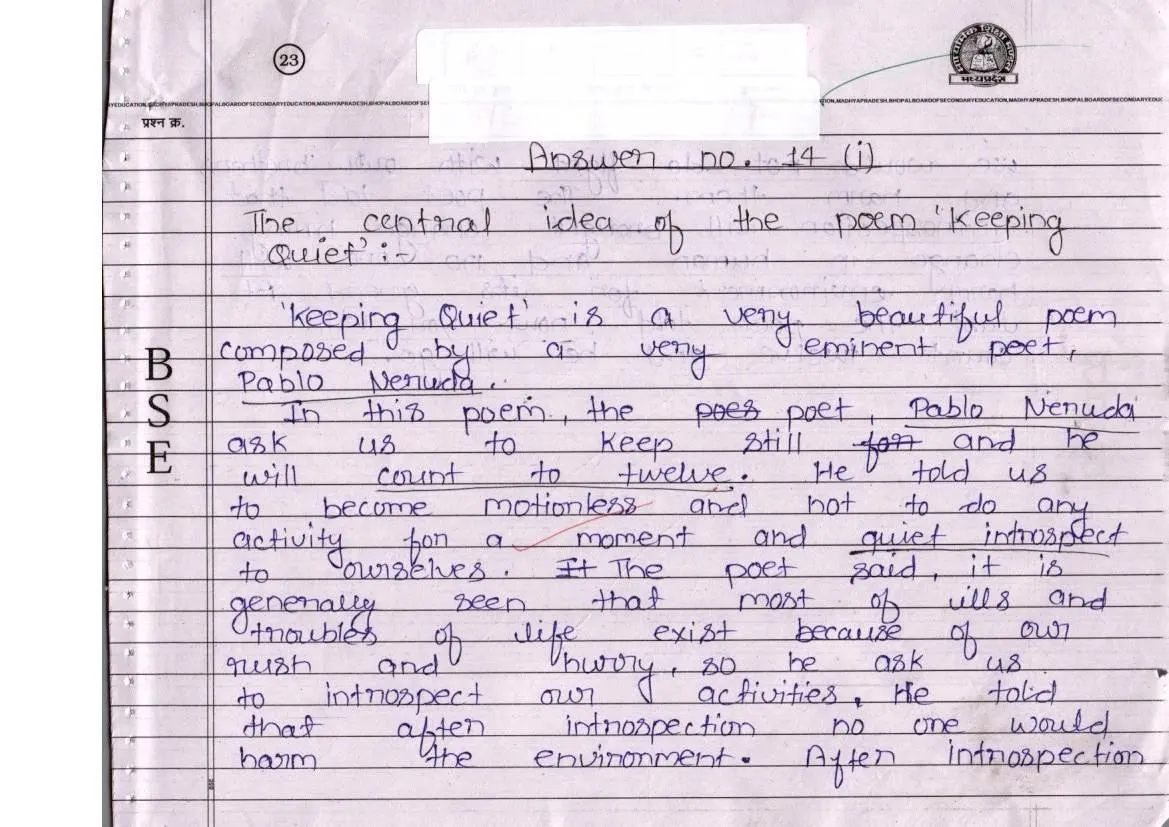 23
मध्यप्रदेश
प्रश्न क्र.
Answer no. 14 (i)
The central idea of the poem 'Keeping
Quiet' :-
'Keeping Quiet' is a very beautiful poem
composed by a very eminent poet,
Pablo Neruda.
In this poem, the poes poet, Pablo Neruda
ask us to keep still for and he
will count to twelve. He told us
to become motionless and not to do any
activity for a moment and quiet introspect
to ourselves. It The poet said, it is
generally seen that most of ills and
troubles of life exist because of our
rush and hurry, so he ask us
to introspect our activities. He told
that after introspection no one would
harm the environment. After introspection
B
S
E